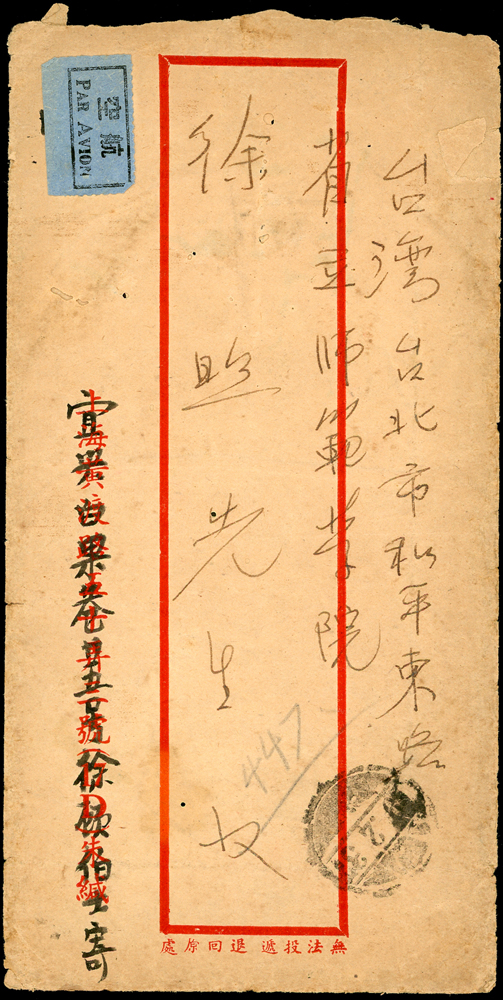 台灣台北市和平東路
省立師範学院
徐照先生收
航空
PAR AVION
宜興白果巷 徐 寄
上海廣
447
無法投遞 退回原處